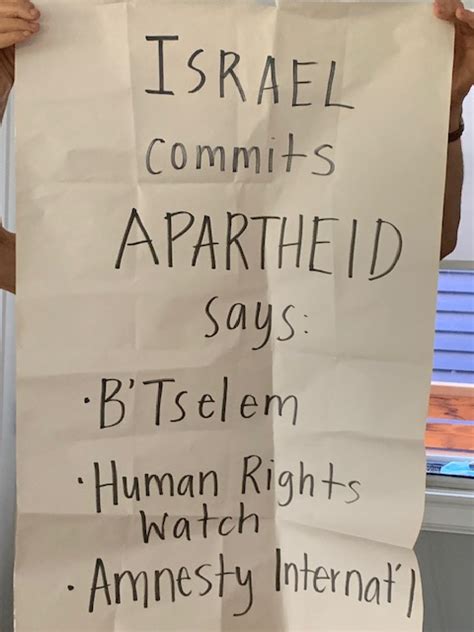 ISRAEL
commits
APARTHEID
says:
·B'Tselem
·Human Rights
Watch
·Amnesty Internat'l